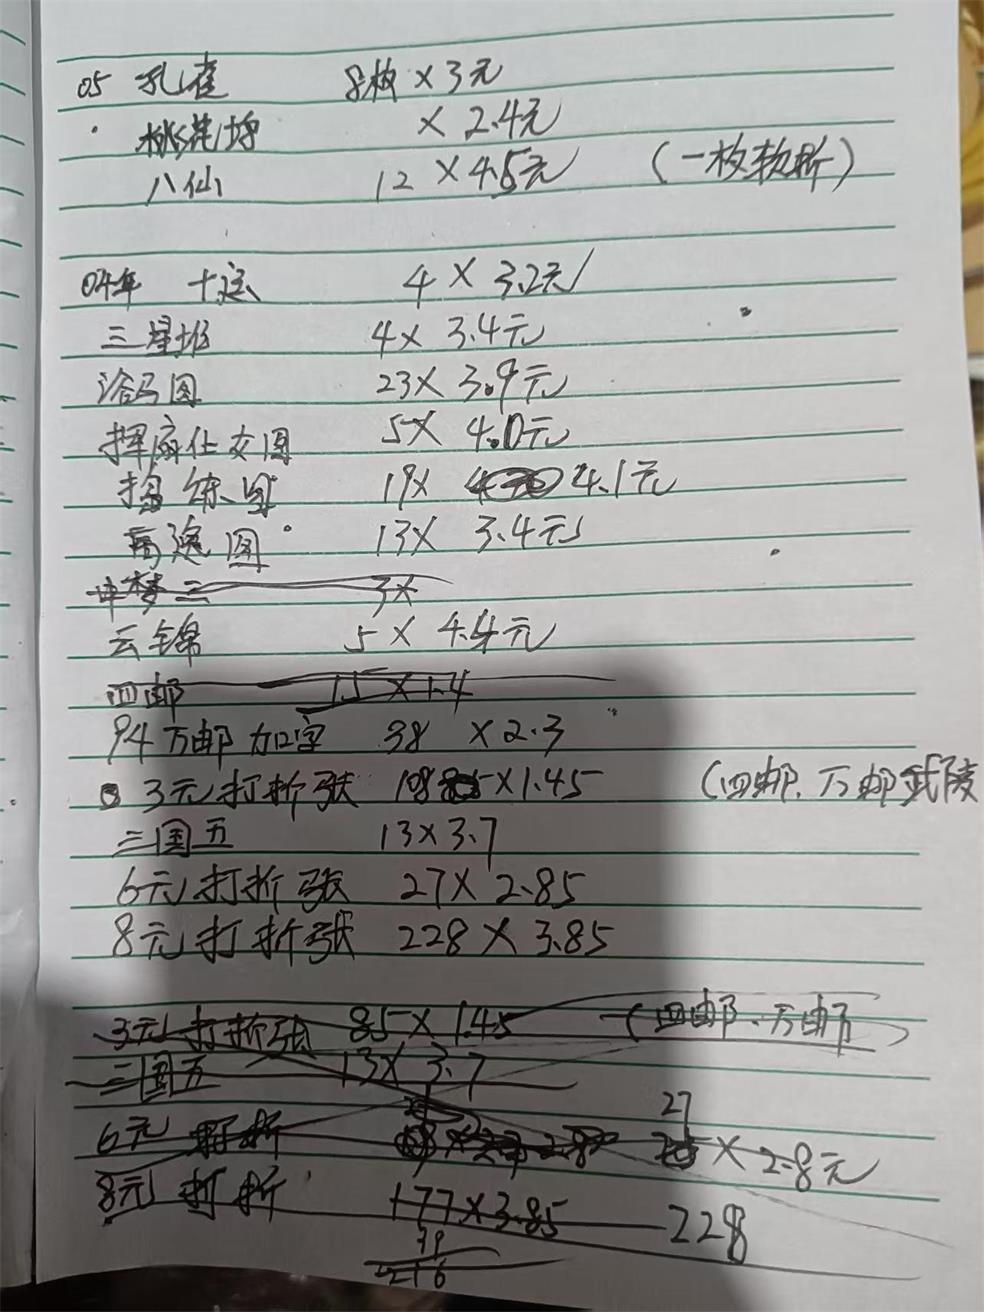 05 孔雀 8枚×3元
桃花坞 ×2.4元
八仙 12×4.5元 (一枚软折)
04年 十运 4×3.2元
三星堆 4×3.4元
浴马图 23×3.9元
挥扇仕女图 5×4.0元
捣练图 19× 4.1元
高逸图 13×3.4元
红楼梦三 3×
云锦 5×4.4元
四邮 15×1.4
94万邮加字 38 ×2.3
3元打折张 108×1.45 (四邮、万邮武陵
三国五 13×3.7
6元打折张 27×2.85
8元打折张 228×3.85
3元打折张 85×1.45 (四邮、万邮
三国五 13×3.7
27
6元 打折 ×2.8元
8元 打折 177×3.85 228
39
216